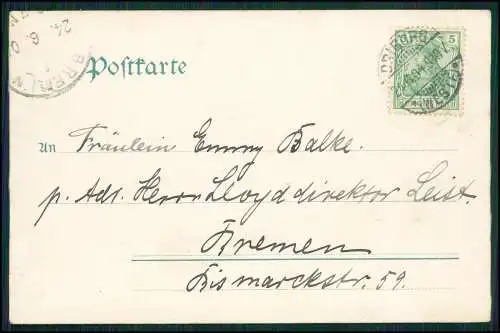 BREMEN
24. 6. 0
Postkarte
5
An Fräulein Emmy Balke.
p. Adr. Herrn Lloyddirektor Leist.
Bremen
Bismarckstr. 59.